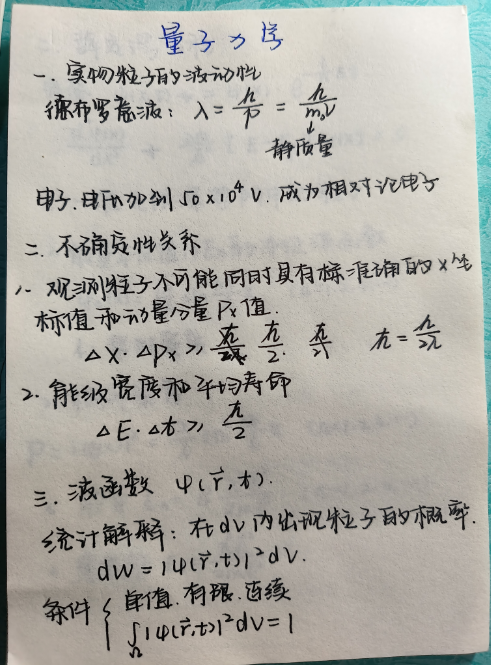 量子力学
一、实物粒子的波动性
德布罗意波：λ = h/p = h/m₀v
↓
静质量
电子.电压加到 50×10⁴ V. 成为相对论电子
二、不确定性关系
1、观测粒子不可能同时具有标准确的 x 坐
标值和动量分量 Px 值.
Δx·ΔPx ≥ ħ/2. ħ = h/2π
2、能级宽度和平均寿命
ΔE·Δt ≥ ħ/2
三、波函数 ψ(r⃗,t).
统计解释：在dv内出现粒子的概率.
dW = |ψ(r⃗,t)|²dV.
条件 { 单值.有限.连续
∫Ω |ψ(r⃗,t)|²dV = 1